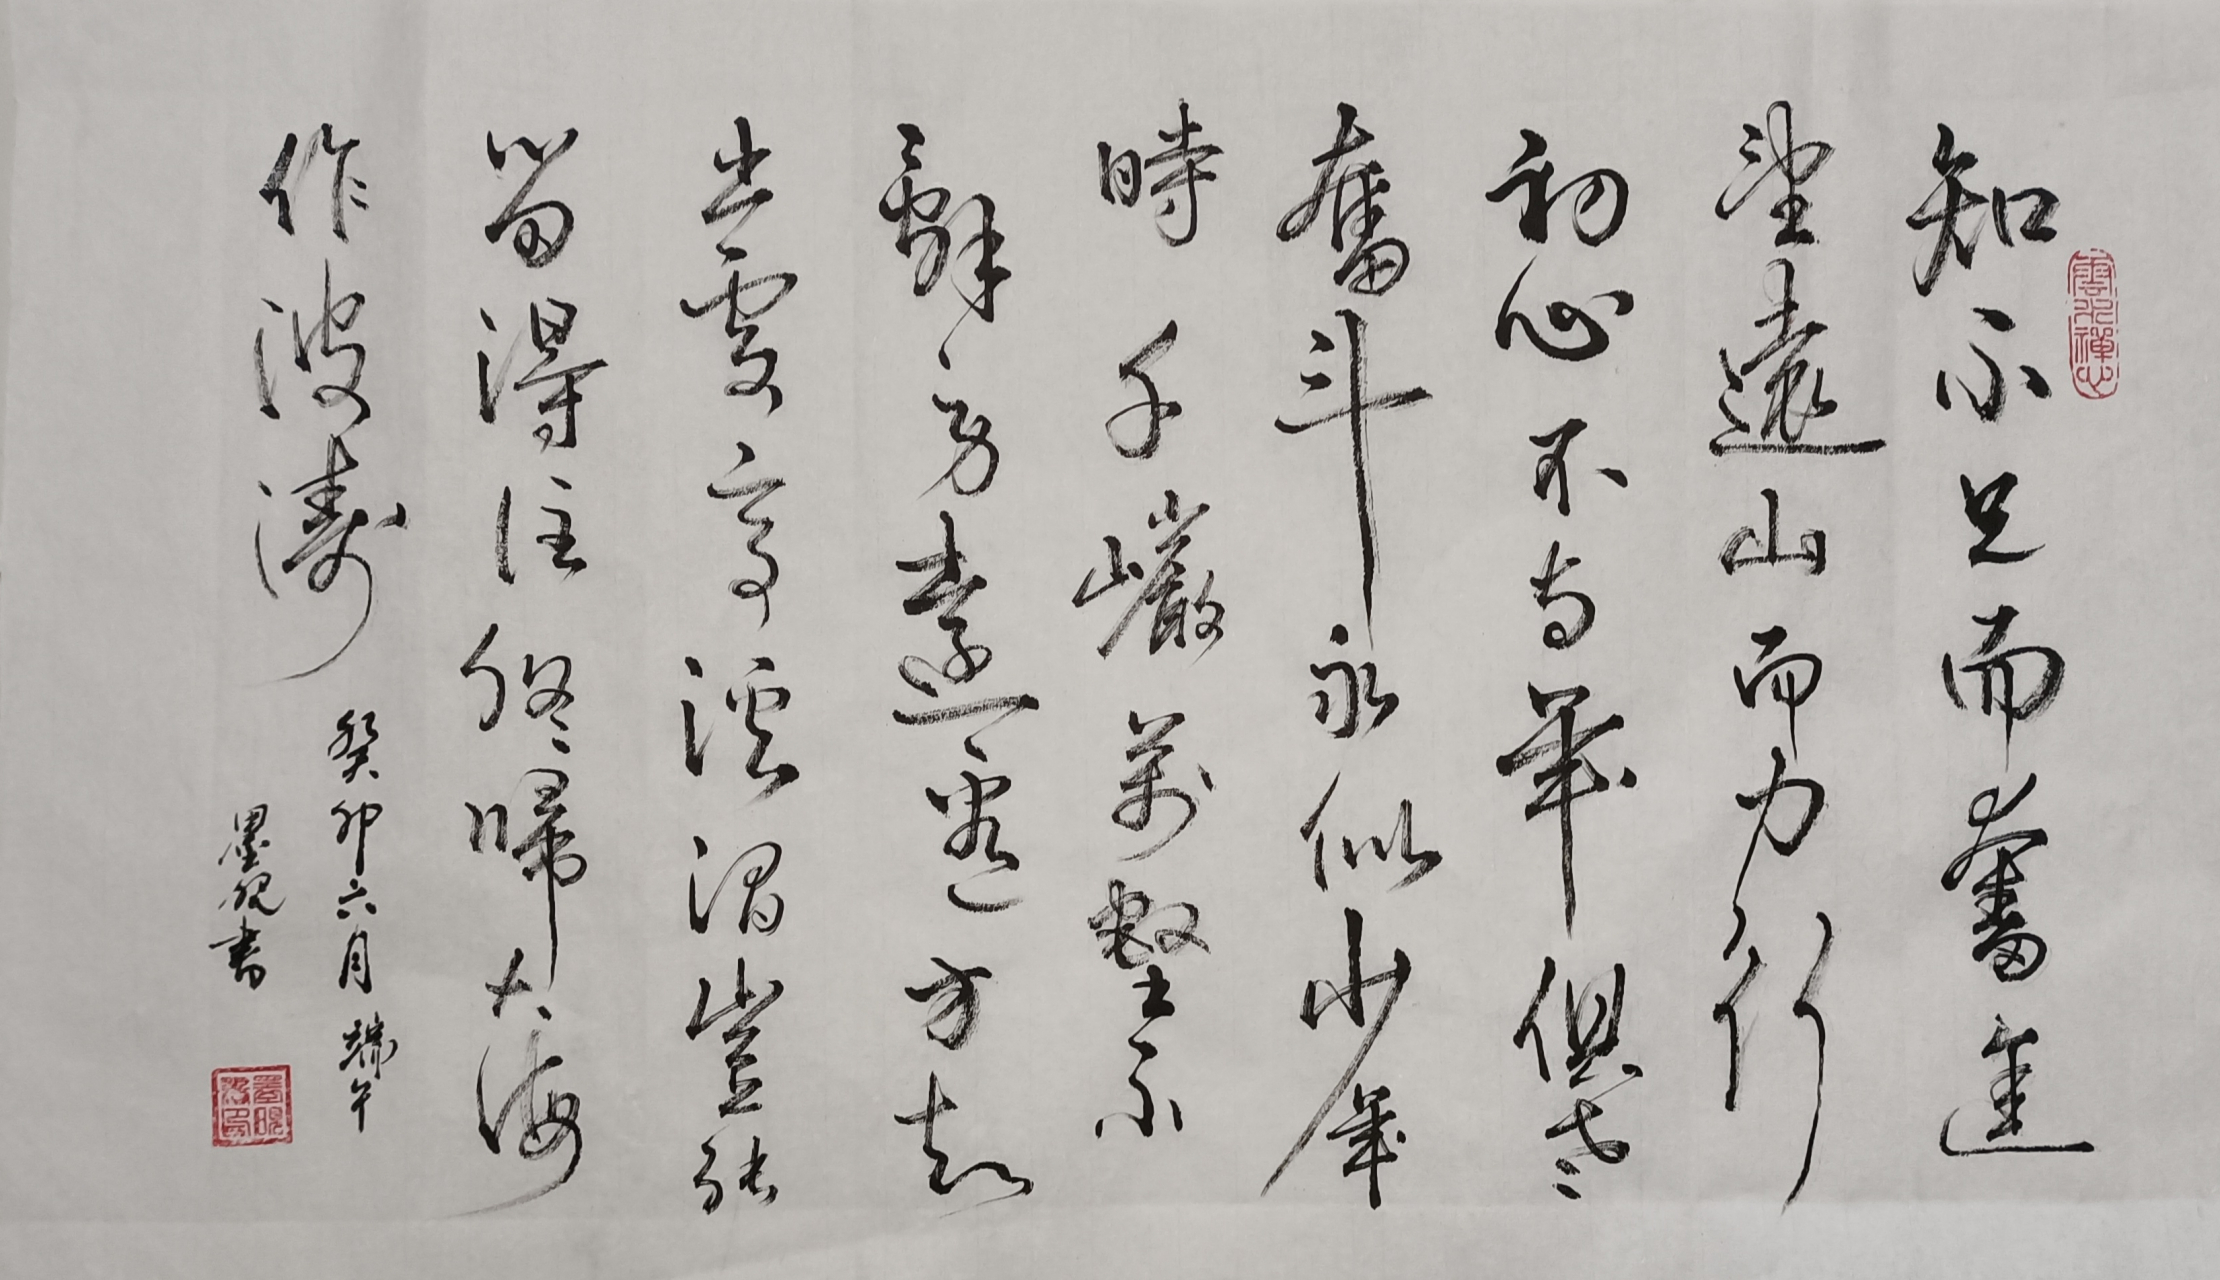 雲水禪心
知不足而奮進
望遠山而力行
初心不与年俱老
奮斗永似少年
時千巖萬壑不
辭勞遠看方知
出處高溪澗豈能
留得住終歸大海
作波濤
癸卯六月端午
墨硯書